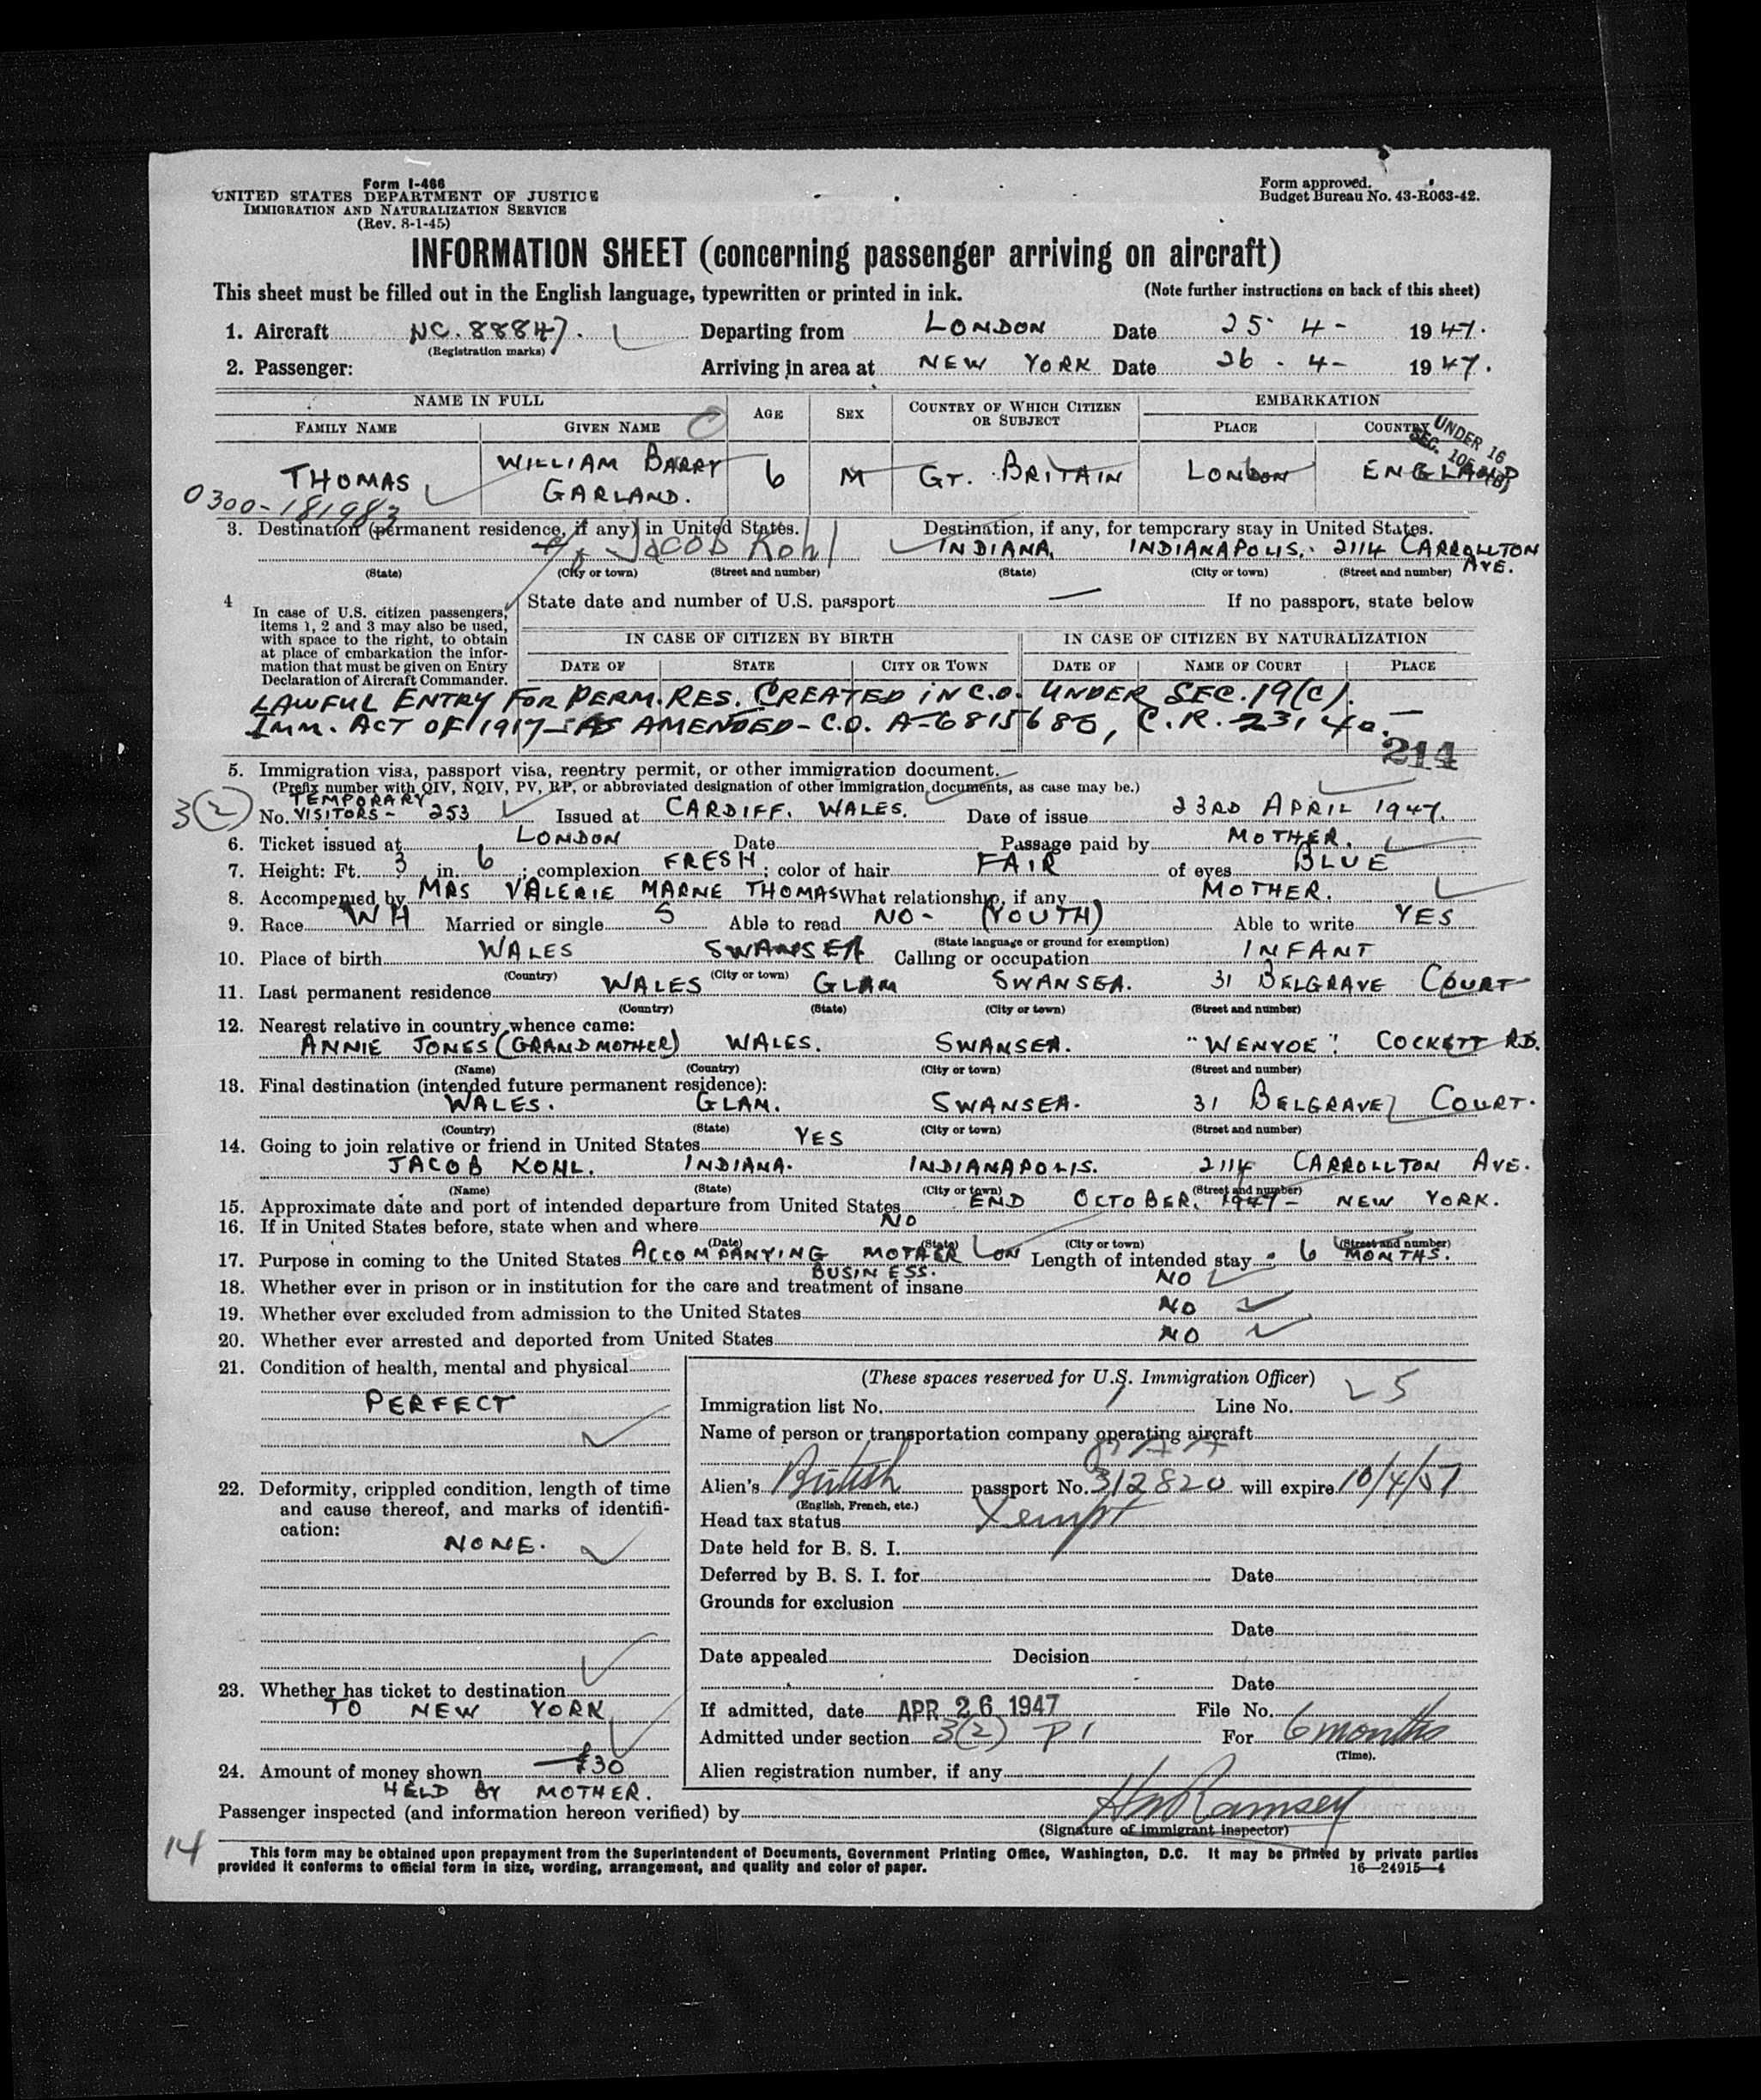 Form I-466
UNITED STATES DEPARTMENT OF JUSTICE
IMMIGRATION AND NATURALIZATION SERVICE
(Rev. 8-1-45)
Form approved.
Budget Bureau No. 43-R063-42.
INFORMATION SHEET (concerning passenger arriving on aircraft)
This sheet must be filled out in the English language, typewritten or printed in ink. (Note further instructions on back of this sheet)
1. Aircraft NC. 88847. Departing from LONDON Date 25 4 - 1947.
(Registration marks)
2. Passenger: Arriving in area at NEW YORK Date 26 - 4 - 1947.
NAME IN FULL AGE SEX COUNTRY OF WHICH CITIZEN OR SUBJECT EMBARKATION
FAMILY NAME GIVEN NAME PLACE COUNTRY
UNDER 16
SEC. 105
THOMAS WILLIAM BARRY GARLAND. 6 M GT. BRITAIN LONDON ENGLAND
0300-181983
3. Destination (permanent residence, if any) in United States. Destination, if any, for temporary stay in United States.
Jacob Kohl INDIANA, INDIANAPOLIS. 2114 CARROLLTON AVE.
(State) (City or town) (Street and number) (State) (City or town) (Street and number)
4 In case of U.S. citizen passengers, items 1, 2 and 3 may also be used, with space to the right, to obtain at place of embarkation the information that must be given on Entry Declaration of Aircraft Commander.
State date and number of U.S. passport — If no passport, state below
IN CASE OF CITIZEN BY BIRTH IN CASE OF CITIZEN BY NATURALIZATION
DATE OF STATE CITY OR TOWN DATE OF NAME OF COURT PLACE
LAWFUL ENTRY FOR PERM. RES. CREATED IN C.O. UNDER SEC. 19(C).
IMM. ACT OF 1917 - AS AMENDED - C.O. A-6815680, C.R. 23140. —
214
5. Immigration visa, passport visa, reentry permit, or other immigration document.
(Prefix number with QIV, NQIV, PV, RP, or abbreviated designation of other immigration documents, as case may be.)
3(2) No. TEMPORARY VISITORS - 253 Issued at CARDIFF. WALES. Date of issue 23RD APRIL 1947.
6. Ticket issued at LONDON Date Passage paid by MOTHER.
7. Height: Ft. 3 in. 6; complexion FRESH; color of hair FAIR of eyes BLUE
8. Accompanied by MRS VALERIE MARNE THOMAS What relationship, if any MOTHER.
9. Race WH Married or single S Able to read NO - (YOUTH) Able to write YES
(State language or ground for exemption)
10. Place of birth WALES SWANSEA Calling or occupation INFANT
(Country) (City or town)
11. Last permanent residence WALES GLAM SWANSEA. 31 BELGRAVE COURT
(Country) (State) (City or town) (Street and number)
12. Nearest relative in country whence came:
ANNIE JONES (GRANDMOTHER) WALES. SWANSEA. "WENVOE". COCKETT RD.
(Name) (Country) (City or town) (Street and number)
13. Final destination (intended future permanent residence):
WALES. GLAM. SWANSEA. 31 BELGRAVE COURT.
(Country) (State) (City or town) (Street and number)
14. Going to join relative or friend in United States YES
JACOB KOHL. INDIANA. INDIANAPOLIS. 2114 CARROLLTON AVE.
(Name) (State) (City or town) (Street and number)
15. Approximate date and port of intended departure from United States END OCTOBER, 1947 - NEW YORK.
16. If in United States before, state when and where NO
(Date) (State) (City or town) (Street and number)
17. Purpose in coming to the United States ACCOMPANYING MOTHER ON BUSINESS. Length of intended stay 6 MONTHS.
18. Whether ever in prison or in institution for the care and treatment of insane NO
19. Whether ever excluded from admission to the United States NO
20. Whether ever arrested and deported from United States NO
21. Condition of health, mental and physical
PERFECT
22. Deformity, crippled condition, length of time
and cause thereof, and marks of identifi-
cation:
NONE.
23. Whether has ticket to destination
TO NEW YORK
24. Amount of money shown £30
HELD BY MOTHER.
(These spaces reserved for U.S. Immigration Officer)
Immigration list No. 1 Line No. 25
Name of person or transportation company operating aircraft
Alien's British passport No. 312820 will expire 10/4/57
(English, French, etc.)
Head tax status Xempt
Date held for B. S. I.
Deferred by B. S. I. for Date
Grounds for exclusion
Date
Date appealed Decision
Date
If admitted, date APR 26 1947 File No.
Admitted under section 3(2) P1 For 6 months
(Time).
Alien registration number, if any
Passenger inspected (and information hereon verified) by HM Ramsey
(Signature of immigrant inspector)
14
This form may be obtained upon prepayment from the Superintendent of Documents, Government Printing Office, Washington, D.C. It may be printed by private parties
provided it conforms to official form in size, wording, arrangement, and quality and color of paper. 16—24915—4